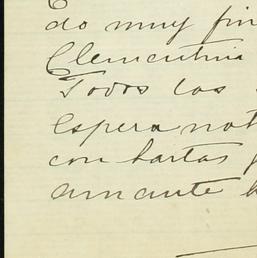 do muy fin
Clementina
Todos los
espera not
con hartas
amante h